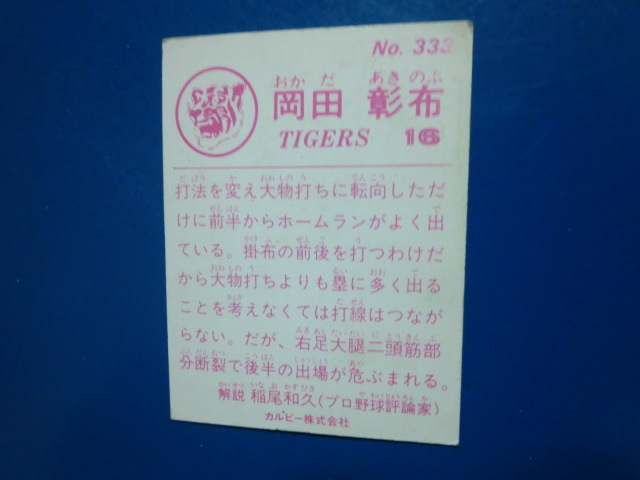 No. 333
おかだ あきのぶ
岡田 彰布
TIGERS 16
打法を変え大物打ちに転向しただ
けに前半からホームランがよく出
ている。掛布の前後を打つわけだ
から大物打ちよりも塁に多く出る
ことを考えなくては打線はつなが
らない。だが、右足大腿二頭筋部
分断裂で後半の出場が危ぶまれる。
解説 稲尾和久(プロ野球評論家)
カルビー株式会社